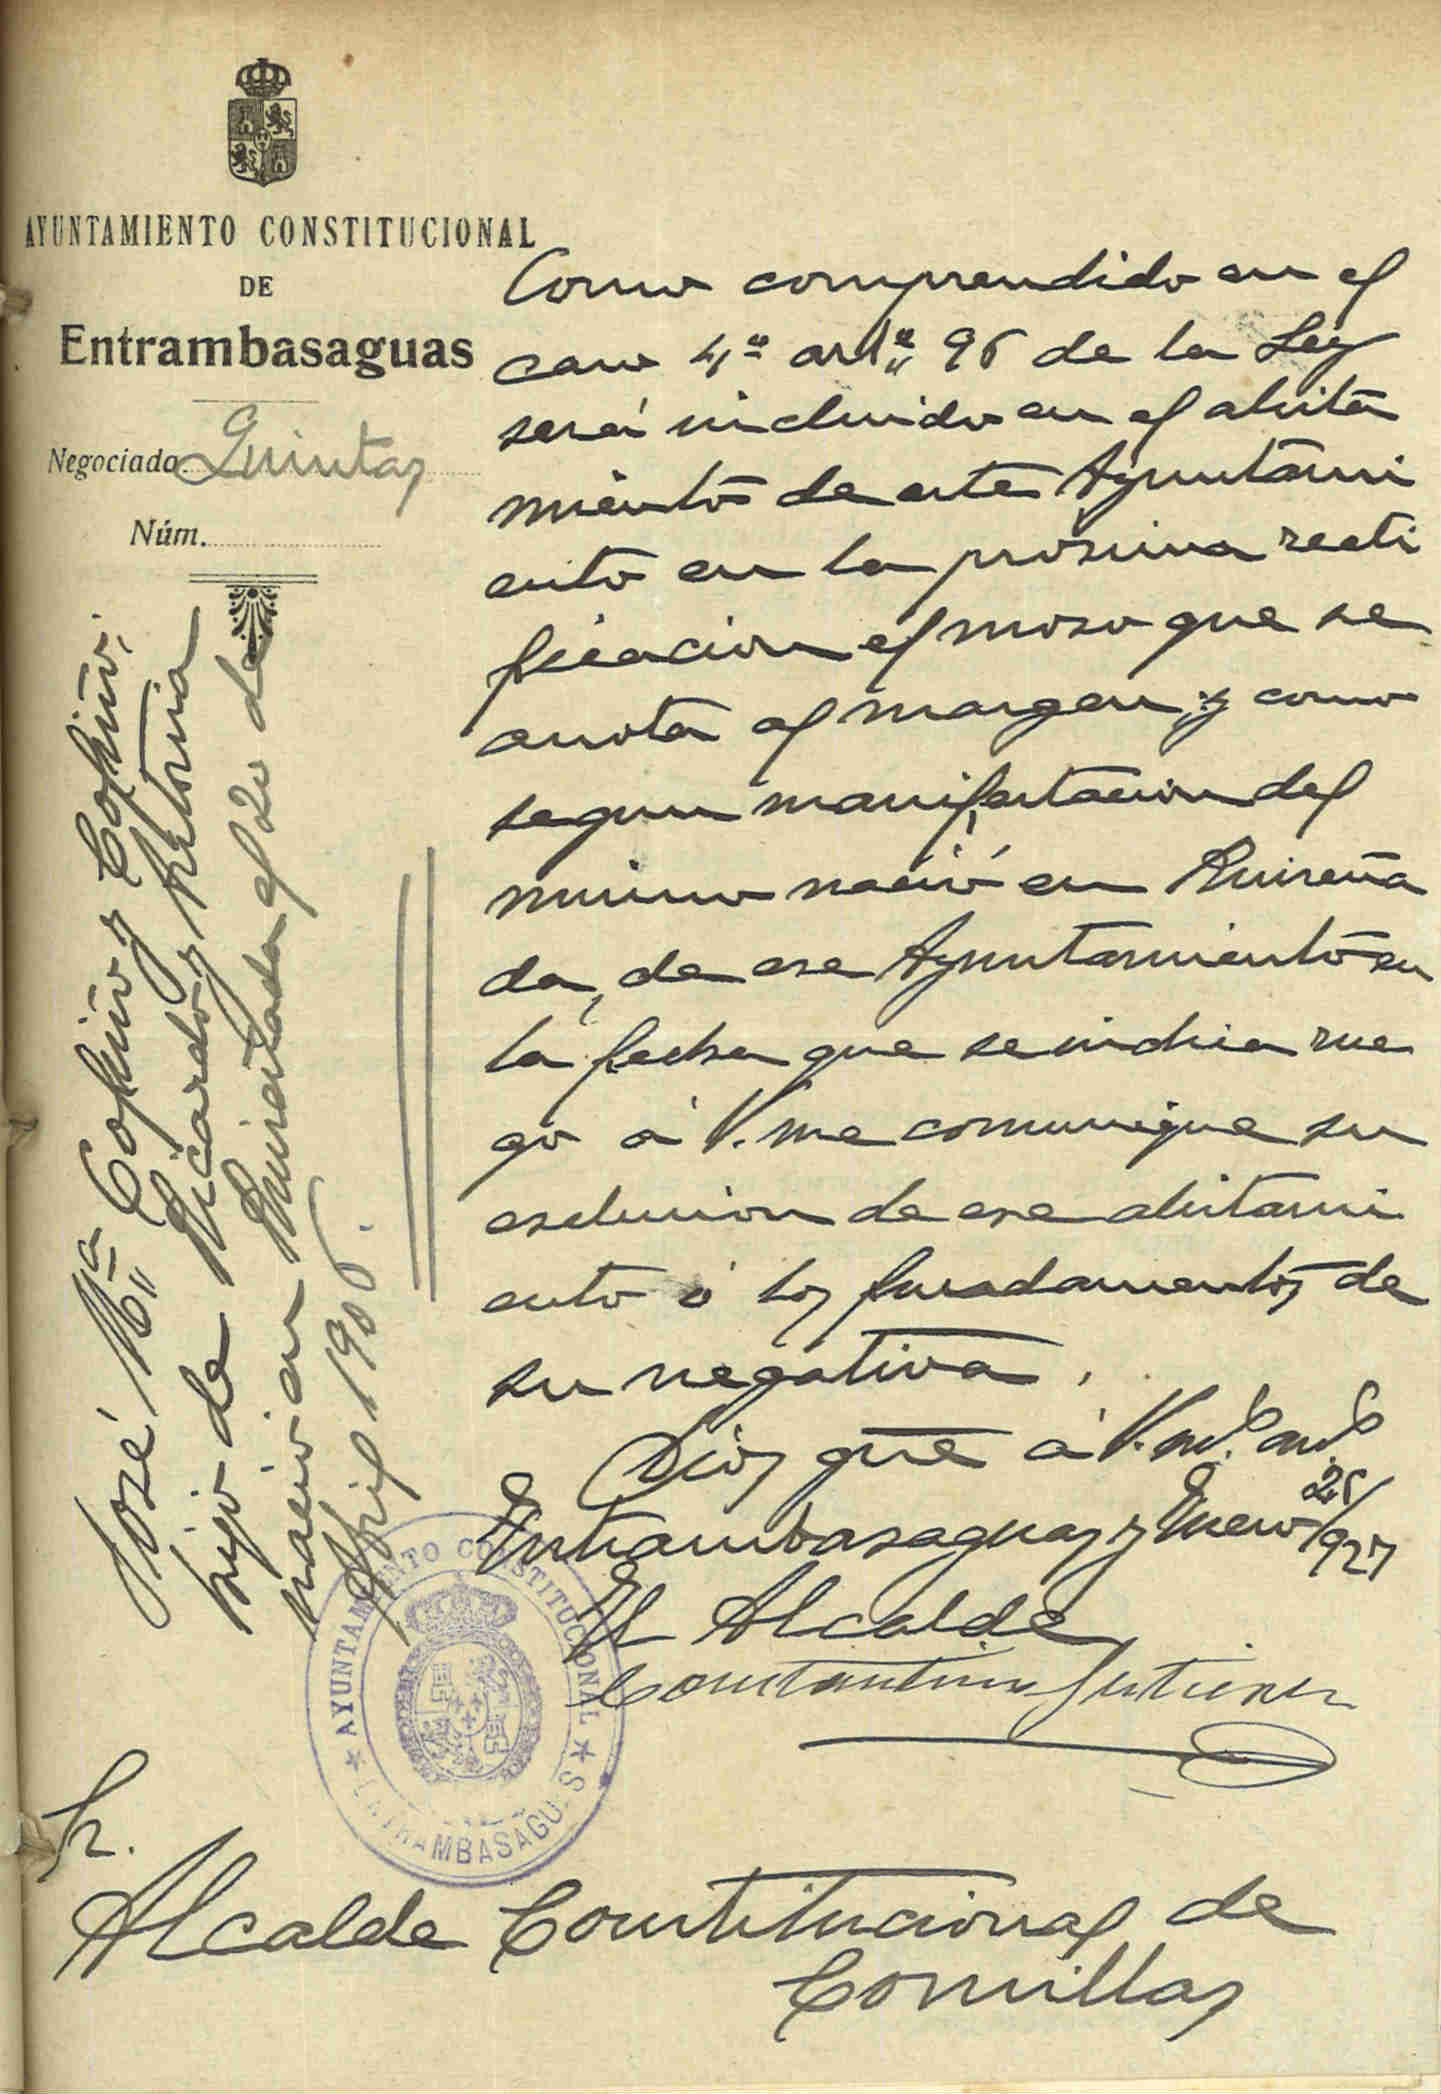 AYUNTAMIENTO CONSTITUCIONAL
DE
Entrambasaguas
Negociado Quintas
Núm.
José Mª Cofiño y Cofiño,
hijo de Ricardo y Antonia
nació en Ruiseñada el 20 de
Abril 1906.
Como comprendido en el
caso 4º artº 96 de la Ley
será incluido en el alista
miento de este Ayuntami
ento en la prosima recti
ficacion el moso que se
anota al margen; y como
segun manifestacion del
mismo nació en Ruiseña
da, de ese Ayuntamiento en
la fecha que se indica rue
go á V. me comunique su
esclusion de ese alistami
ento ó los fundamentos de
su negativa.
Dios gue á V. ms. as.
Entrambasaguas y Enero 26/927
El Alcalde
Constantino Gutierrez
AYUNTAMIENTO CONSTITUCIONAL
ENTRAMBASAGUAS
Sr.
Alcalde Constitucional de
Comillas